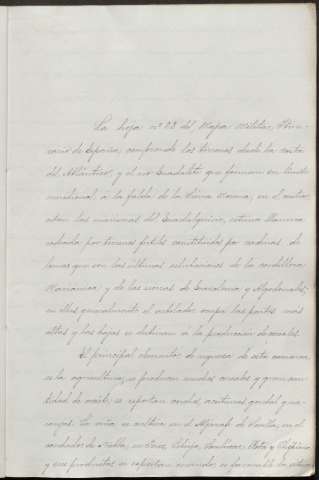 La hoja nº 28 del Mapa Militar Itine-
rario de España, comprende los terrenos desde la costa
del Atlántico, y el rio Guadalete que forman su limite
meridional á la falda de la Sierra Morena; en el centro
estan las marismas del Guadalquivir, extensa llanura
rodeada por terrenos fértiles constituidos por cadenas de
lomas que son las últimas estribaciones de la cordillera
Mariánica y de las sierras de Grazalema y Algodonales;
en ellas generalmente el arbolado ocupa las partes mas
altas y las bajas se destinan á la producción de cereales.
El principal elemento de riqueza de esta comarca
es la agricultura; se producen muchos cereales y gran can-
tidad de aceite; se exportan muchas aceitunas gordal y man-
zanilla. La viña se cultiva en el Aljarafe de Sevilla, en el
condado de Niebla, en Jerez, Lebrija, Sanlúcar, Rota y Chipiona
y sus productos se exportan